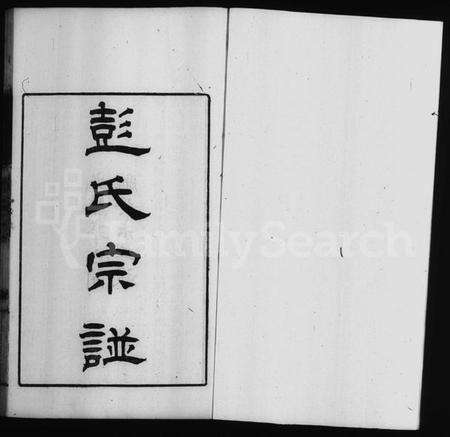 彭氏宗譜
FamilySearch